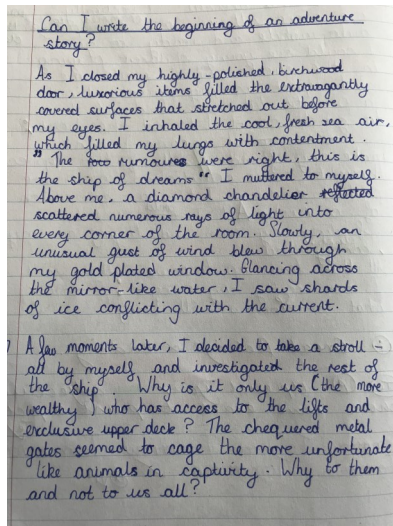 Can I write the beginning of an adventure
story?
As I closed my highly-polished, birchwood
door, luxorious items filled the extravagantly
covered surfaces that stretched out before
my eyes. I inhaled the cool, fresh sea air,
which filled my lungs with contentment.
"The rumoures were right, this is
the ship of dreams" I muttered to myself.
Above me, a diamond chandelier reflected
scattered numerous rays of light into
every corner of the room. Slowly, an
unusual gust of wind blew through
my gold plated window. Glancing across
the mirror-like water, I saw shards
of ice conflicting with the current.
A few moments later, I decided to take a stroll -
all by myself and investigated the rest of
the ship. Why is it only us (the more
wealthy) who has access to the lifts and
exclusive upper deck? The chequered metal
gates seemed to cage the more unfortunate
like animals in captivity. Why to them
and not to us all?